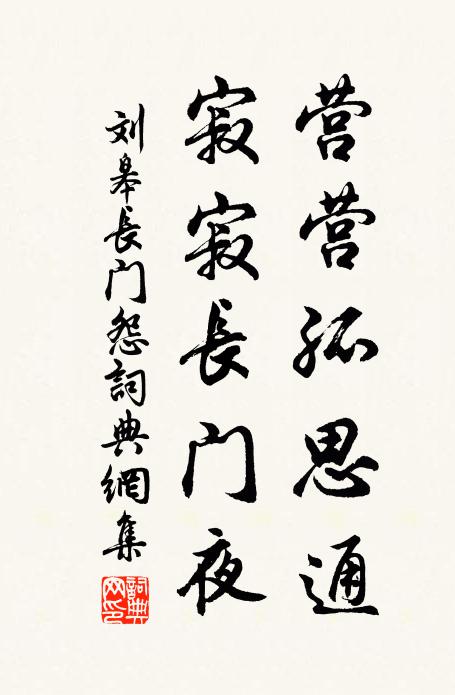 营营孤思通
寂寂長门夜
刘皋長门怨詞典網集
詞典网印